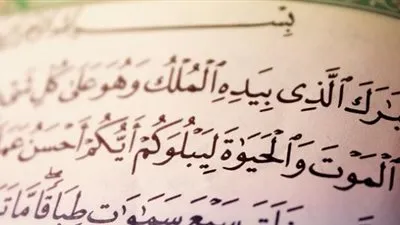 بِسْمِ
بَٰرَكَ ٱلَّذِى بِيَدِهِ ٱلْمُلْكُ وَهُوَ عَلَىٰ كُلِّ شَىْ
ٱلْمَوْتَ وَٱلْحَيَوٰةَ لِيَبْلُوَكُمْ أَيُّكُمْ أَحْسَنُ عَمَلًا
خَلَقَ سَبْعَ سَمَٰوَٰتٍ طِبَاقًا مَّا تَ